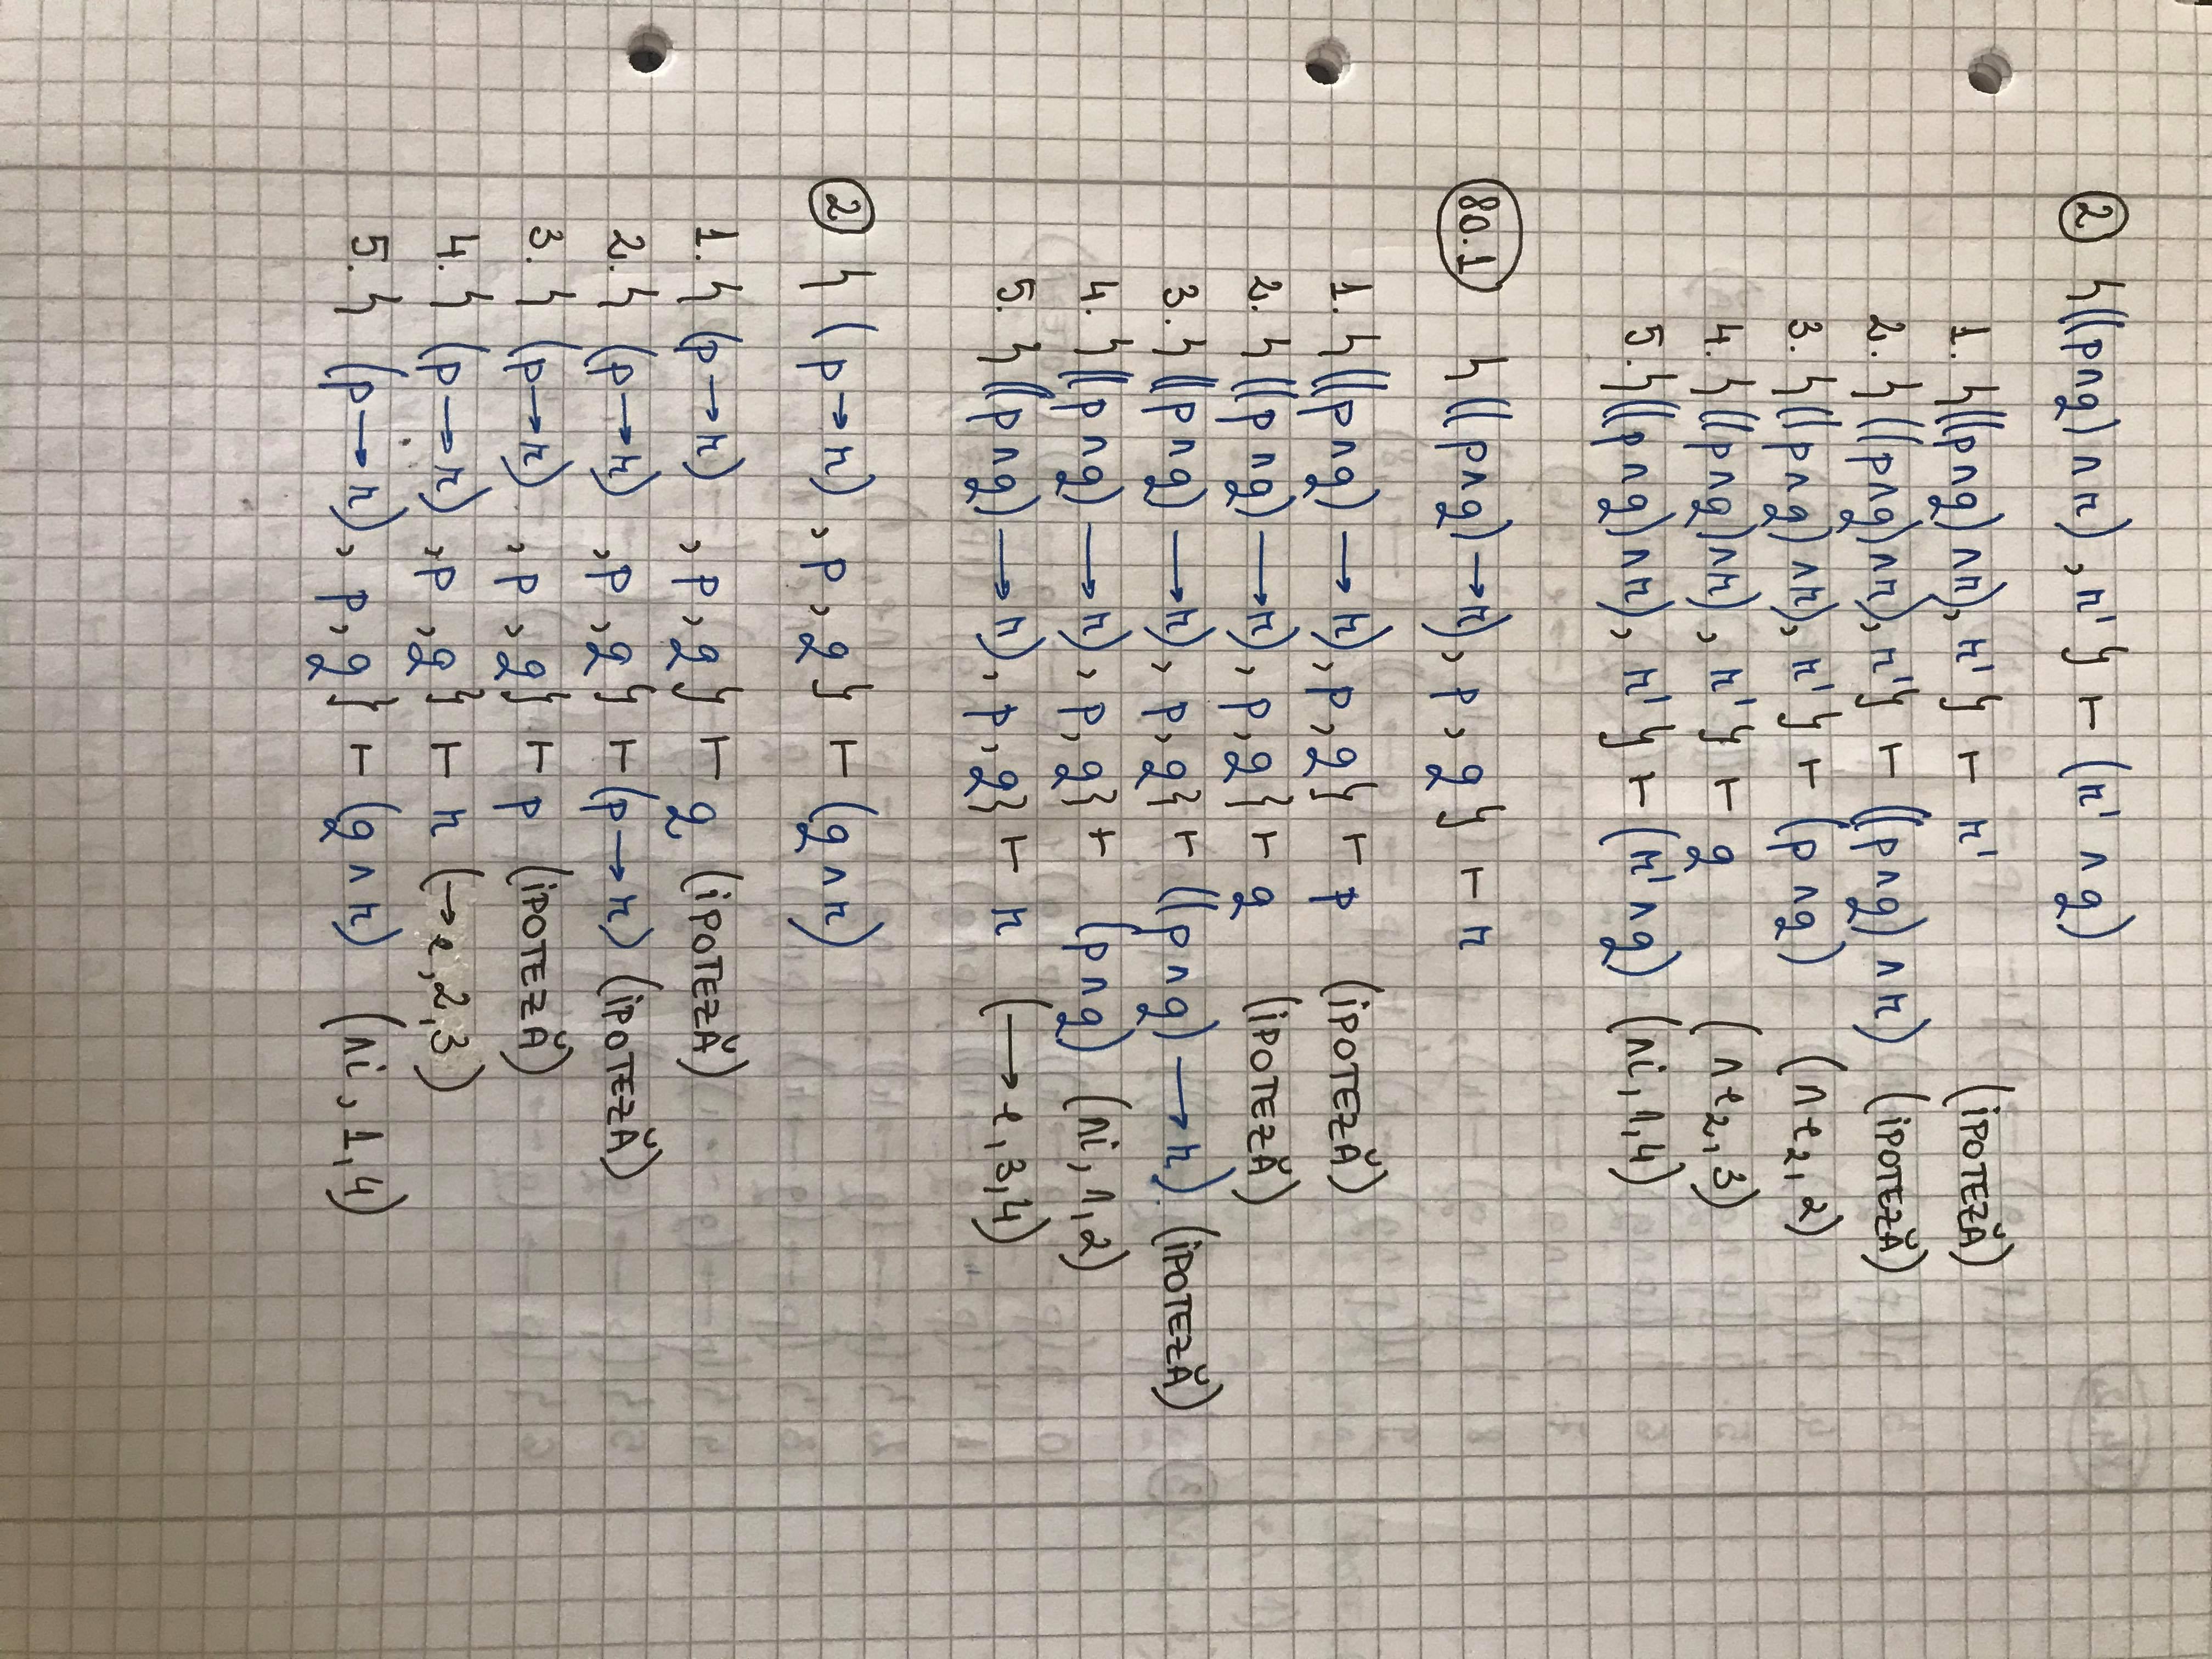 ② {((p∧q) ∧ r), r'} ⊢ (r' ∧ q)
1. {((p∧q) ∧r), r'} ⊢ r' (iPOTEZĂ)
2. {((p∧q)∧r), r'} ⊢ ((p∧q) ∧ r) (iPOTEZĂ)
3. {((p∧q) ∧r), r'} ⊢ (p∧q) (∧e₂, 2)
4. {((p∧q)∧r), r'} ⊢ q (∧e₂, 3)
5. {((p∧q)∧r), r'} ⊢ (r'∧q) (∧i, 1,4)
80.1 {((p∧q)→r), p, q} ⊢ r
1. {((p∧q) → r), p, q} ⊢ p (iPOTEZĂ)
2. {((p∧q) → r), p, q} ⊢ q (iPOTEZĂ)
3. {((p∧q) → r), p, q} ⊢ ((p∧q) → r). (iPOTEZĂ)
4. {((p∧q) → r), p, q} ⊢ (p∧q) (∧i, 1,2)
5. {((p∧q) → r), p, q} ⊢ r (→e, 3,4)
② {(p→r), p, q} ⊢ (q∧r)
1. {(p→r), p, q} ⊢ q (iPOTEZĂ)
2. {(p→r), p, q} ⊢ (p→r) (iPOTEZĂ)
3. {(p→r), p, q} ⊢ p (iPOTEZĂ)
4. {(p→r), p, q} ⊢ r (→e, 2,3)
5. {(p→r), p, q} ⊢ (q∧r) (∧i, 1,4)